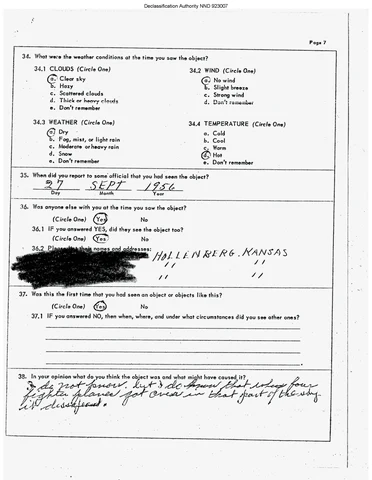 Declassification Authority NND 923007
Page 7
34. What were the weather conditions at the time you saw the object?
34.1 CLOUDS (Circle One)
a. Clear sky
b. Hazy
c. Scattered clouds
d. Thick or heavy clouds
e. Don't remember
34.2 WIND (Circle One)
a. No wind
b. Slight breeze
c. Strong wind
d. Don't remember
34.3 WEATHER (Circle One)
a. Dry
b. Fog, mist, or light rain
c. Moderate or heavy rain
d. Snow
e. Don't remember
34.4 TEMPERATURE (Circle One)
a. Cold
b. Cool
c. Warm
d. Hot
e. Don't remember
35. When did you report to some official that you had seen the object?
27 SEPT 1956
Day Month Year
36. Was anyone else with you at the time you saw the object?
(Circle One) Yes No
36.1 IF you answered YES, did they see the object too?
(Circle One) Yes No
36.2 Please their names and addresses:
HOLLENBERG, KANSAS
" "
" "
37. Was this the first time that you had seen an object or objects like this?
(Circle One) Yes No
37.1 IF you answered NO, then when, where, and under what circumstances did you see other ones?
38. In your opinion what do you think the object was and what might have caused it?
I do not know. but I do know that when four
fighter planes got over in that part of the sky
it disappeared.